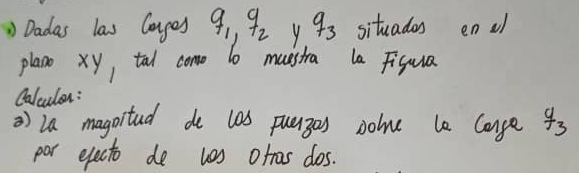 1) Dadas las Cargas q1, q2 y q3 situados en el
plano xy, tal como lo muestra la Figura
Calcular:
a) La magnitud de los fuerzas sobre la Carga q3
por efecto de los otras dos.